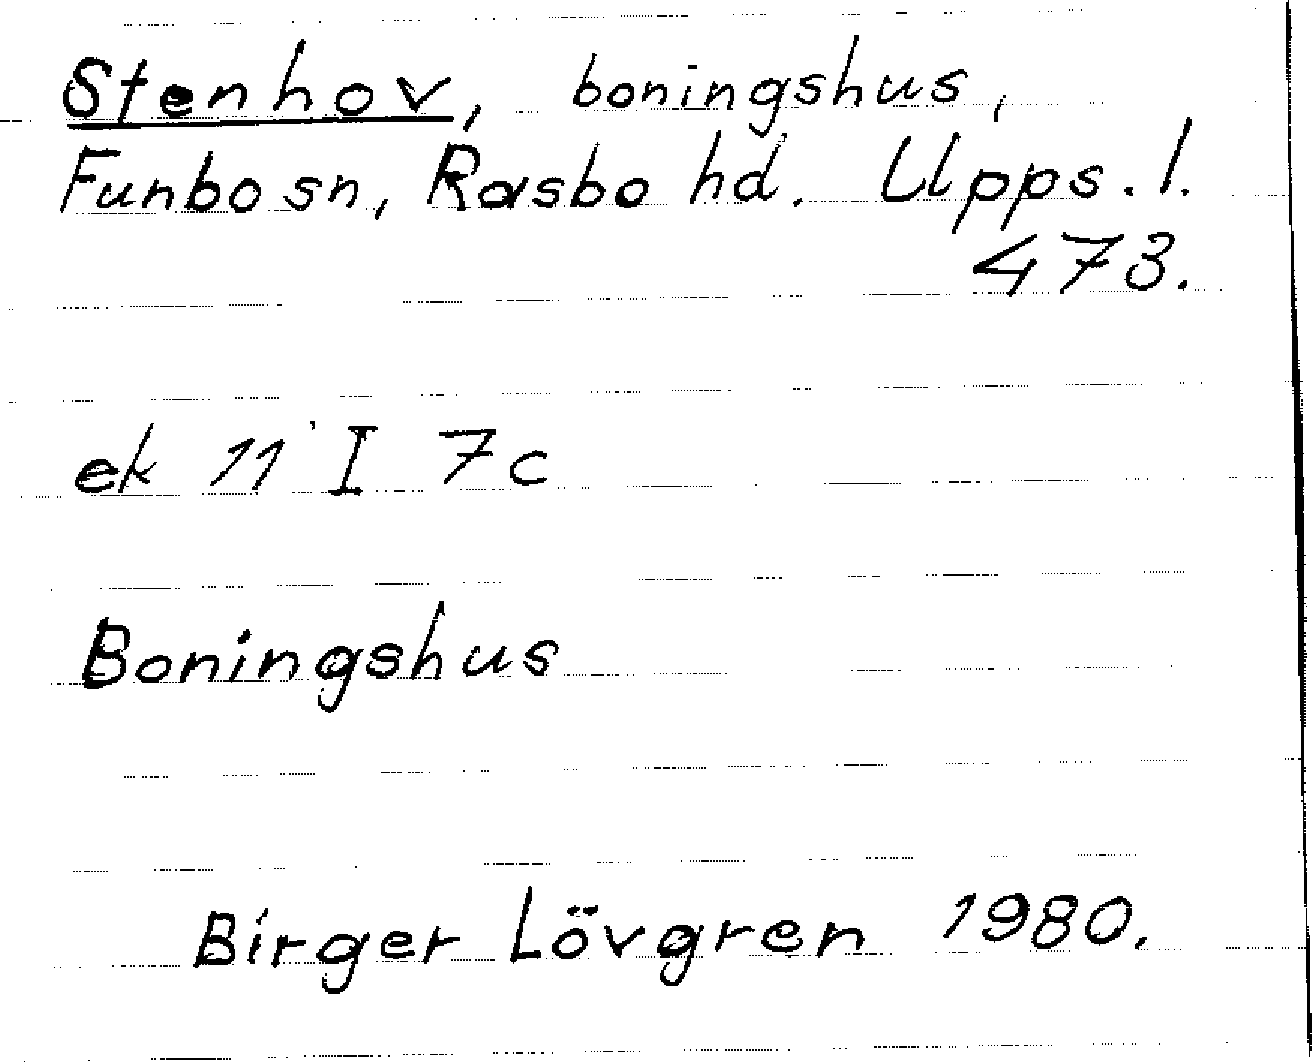 Stenhov, boningshus,
Funbo sn, Rasbo hd. Upps. l.
473.
ek 11 I 7c
Boningshus
Birger Lövgren 1980.